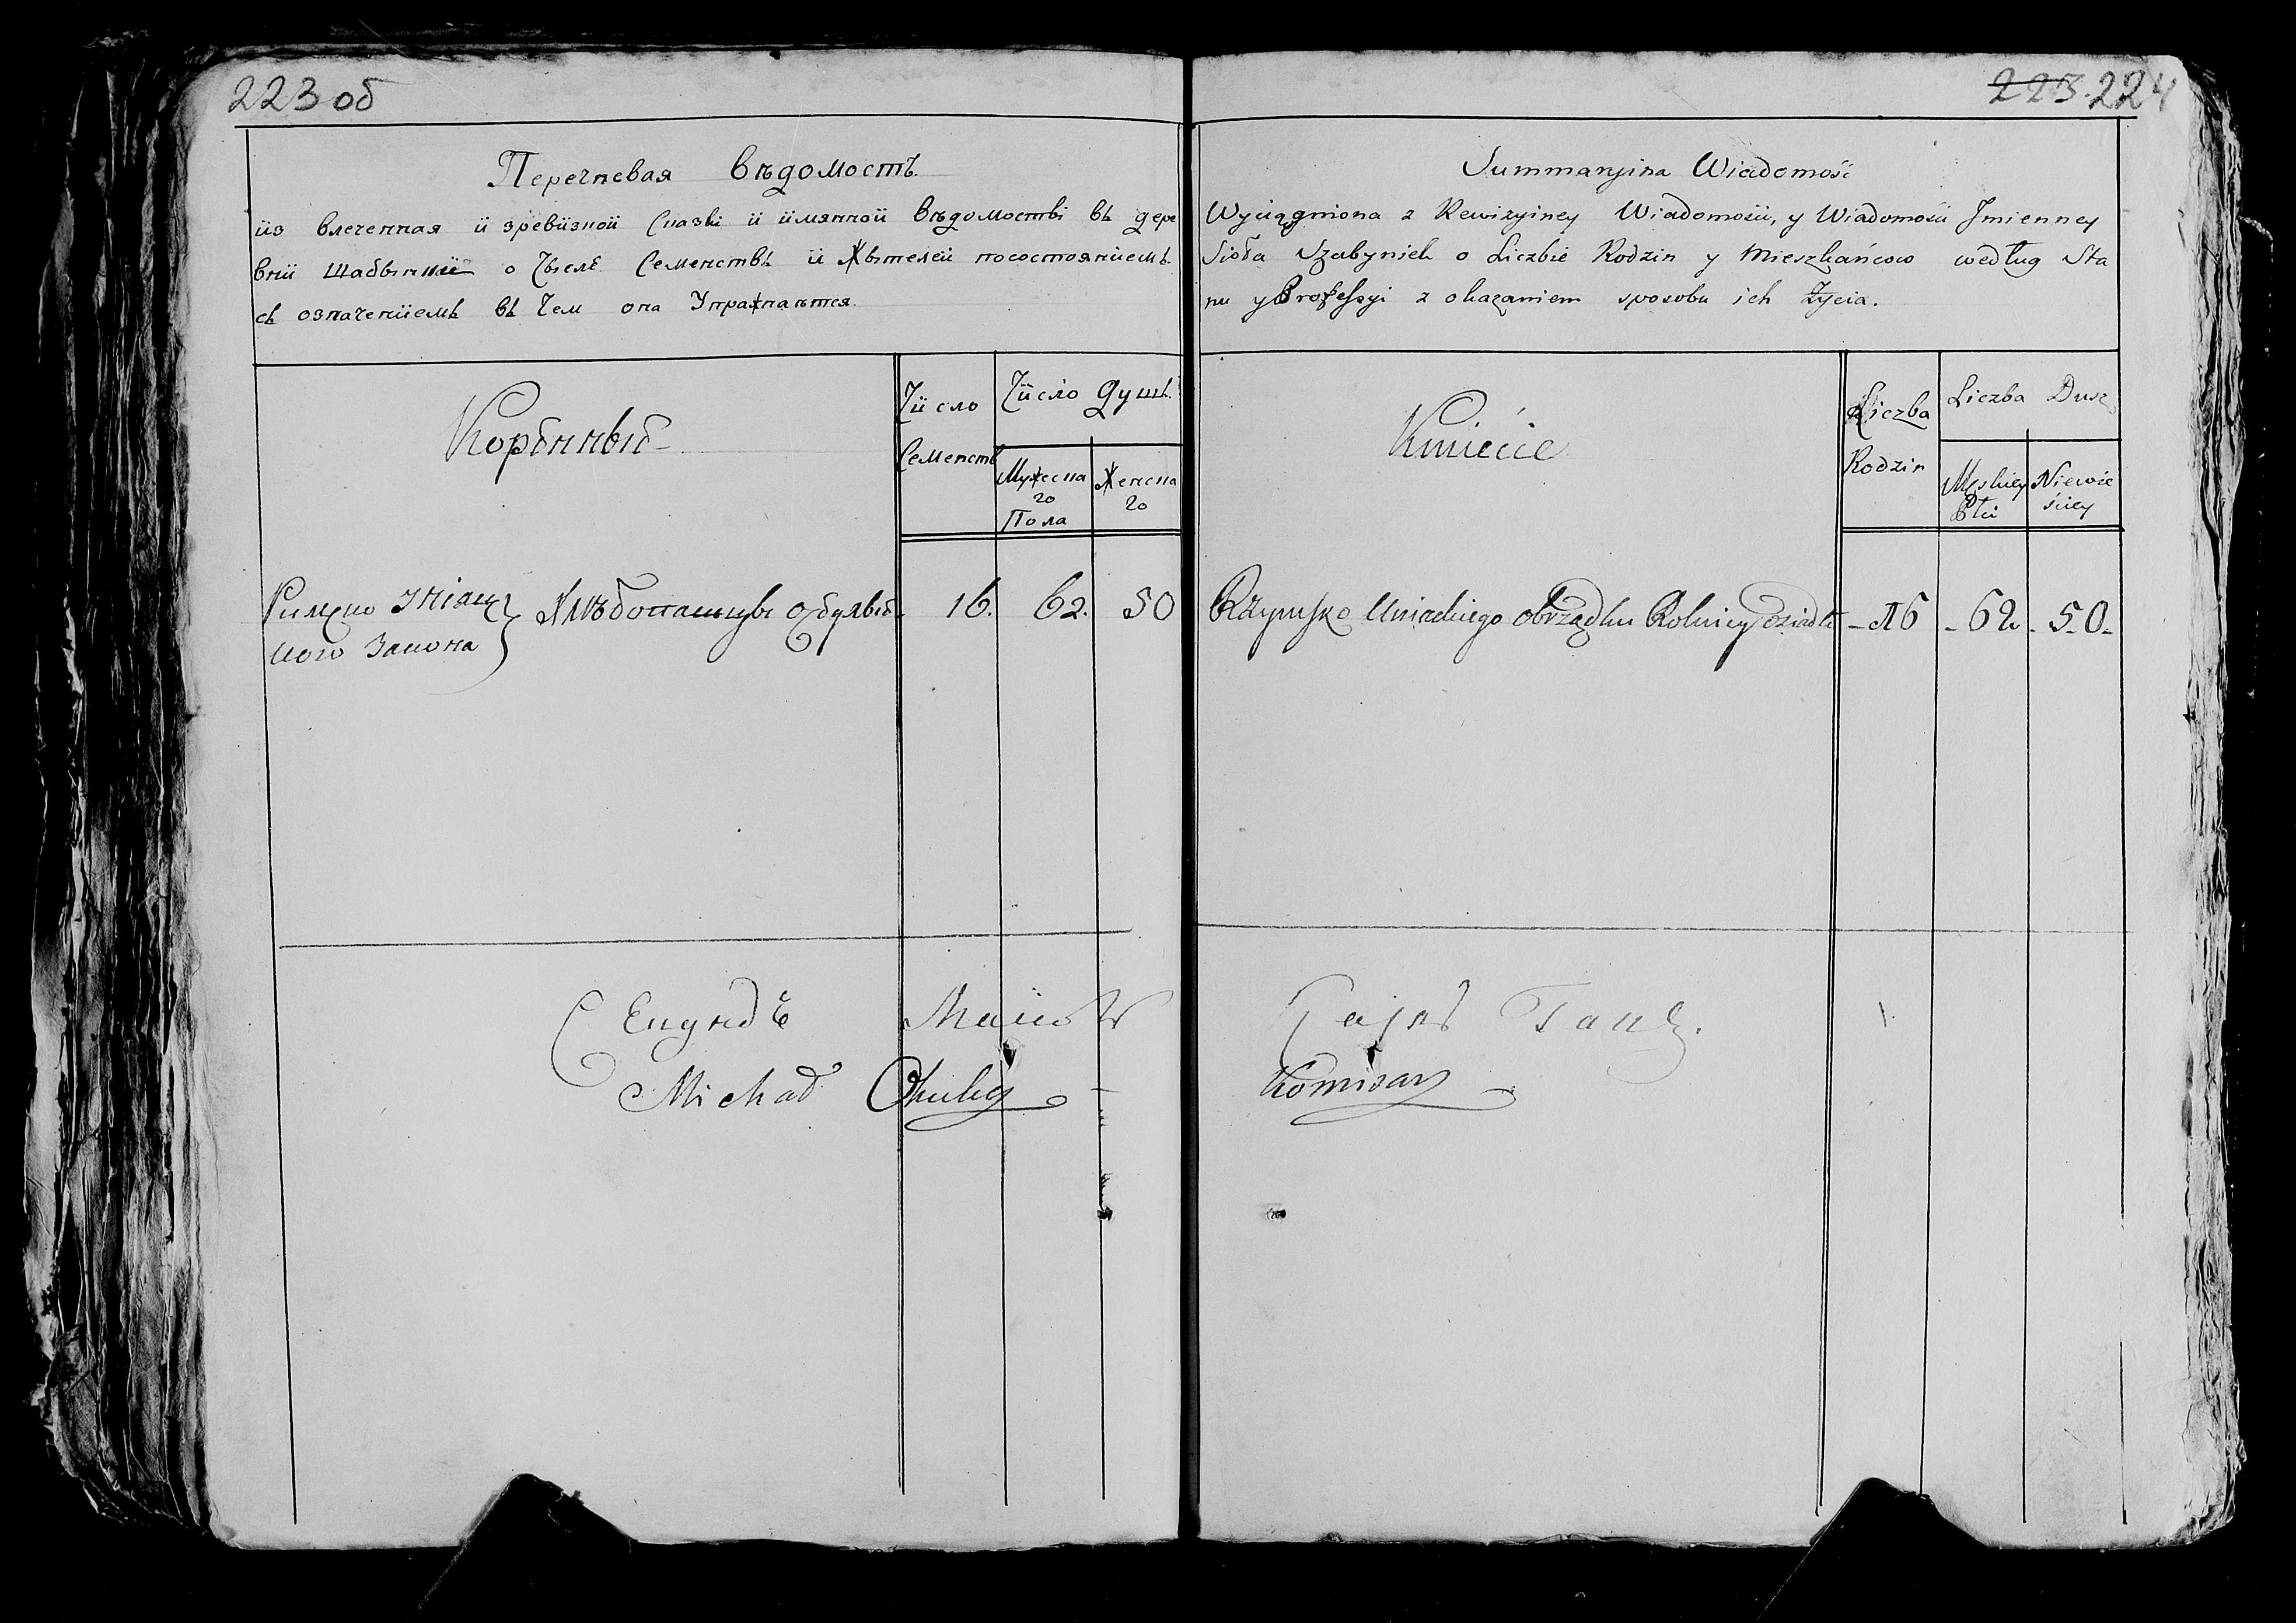 223 об
Перечневая Вѣдомостъ.
üз влеченная ü зревüзной Сказкi ü üмянной Вѣдомостi въ дере
внü Шабынкü о Чыслѣ Семенствъ ü Жытелей посостоянüемъ
съ означенüемъ въ Чем она Упражнаытся.
Чüсло
Семенств
Чüсло Душъ
Мужеска
го
Пола
Женска
го
Римско Унiяц
кого Закона
Хлѣбопашцы
16. 62. 50
Michał
223. 224
Summaryina Wiadomość
Wyciągniona z Rewizyiney Wiadomości, y Wiadomości Jmienney
Sioła Szabyniek o Liczbie Rodzin y Mieszkańcow według Sta
nu y Professyi z okazaniem sposobu ich Życia.
Kmiecie
Liczba
Rodzin
Liczba Dusz
Męskiey
Płci
Niewie
ściey
Rzymsko Uniackiego obrządku Rolnicy Osiadli
- 16 - 62 - 50 -
Komisarz